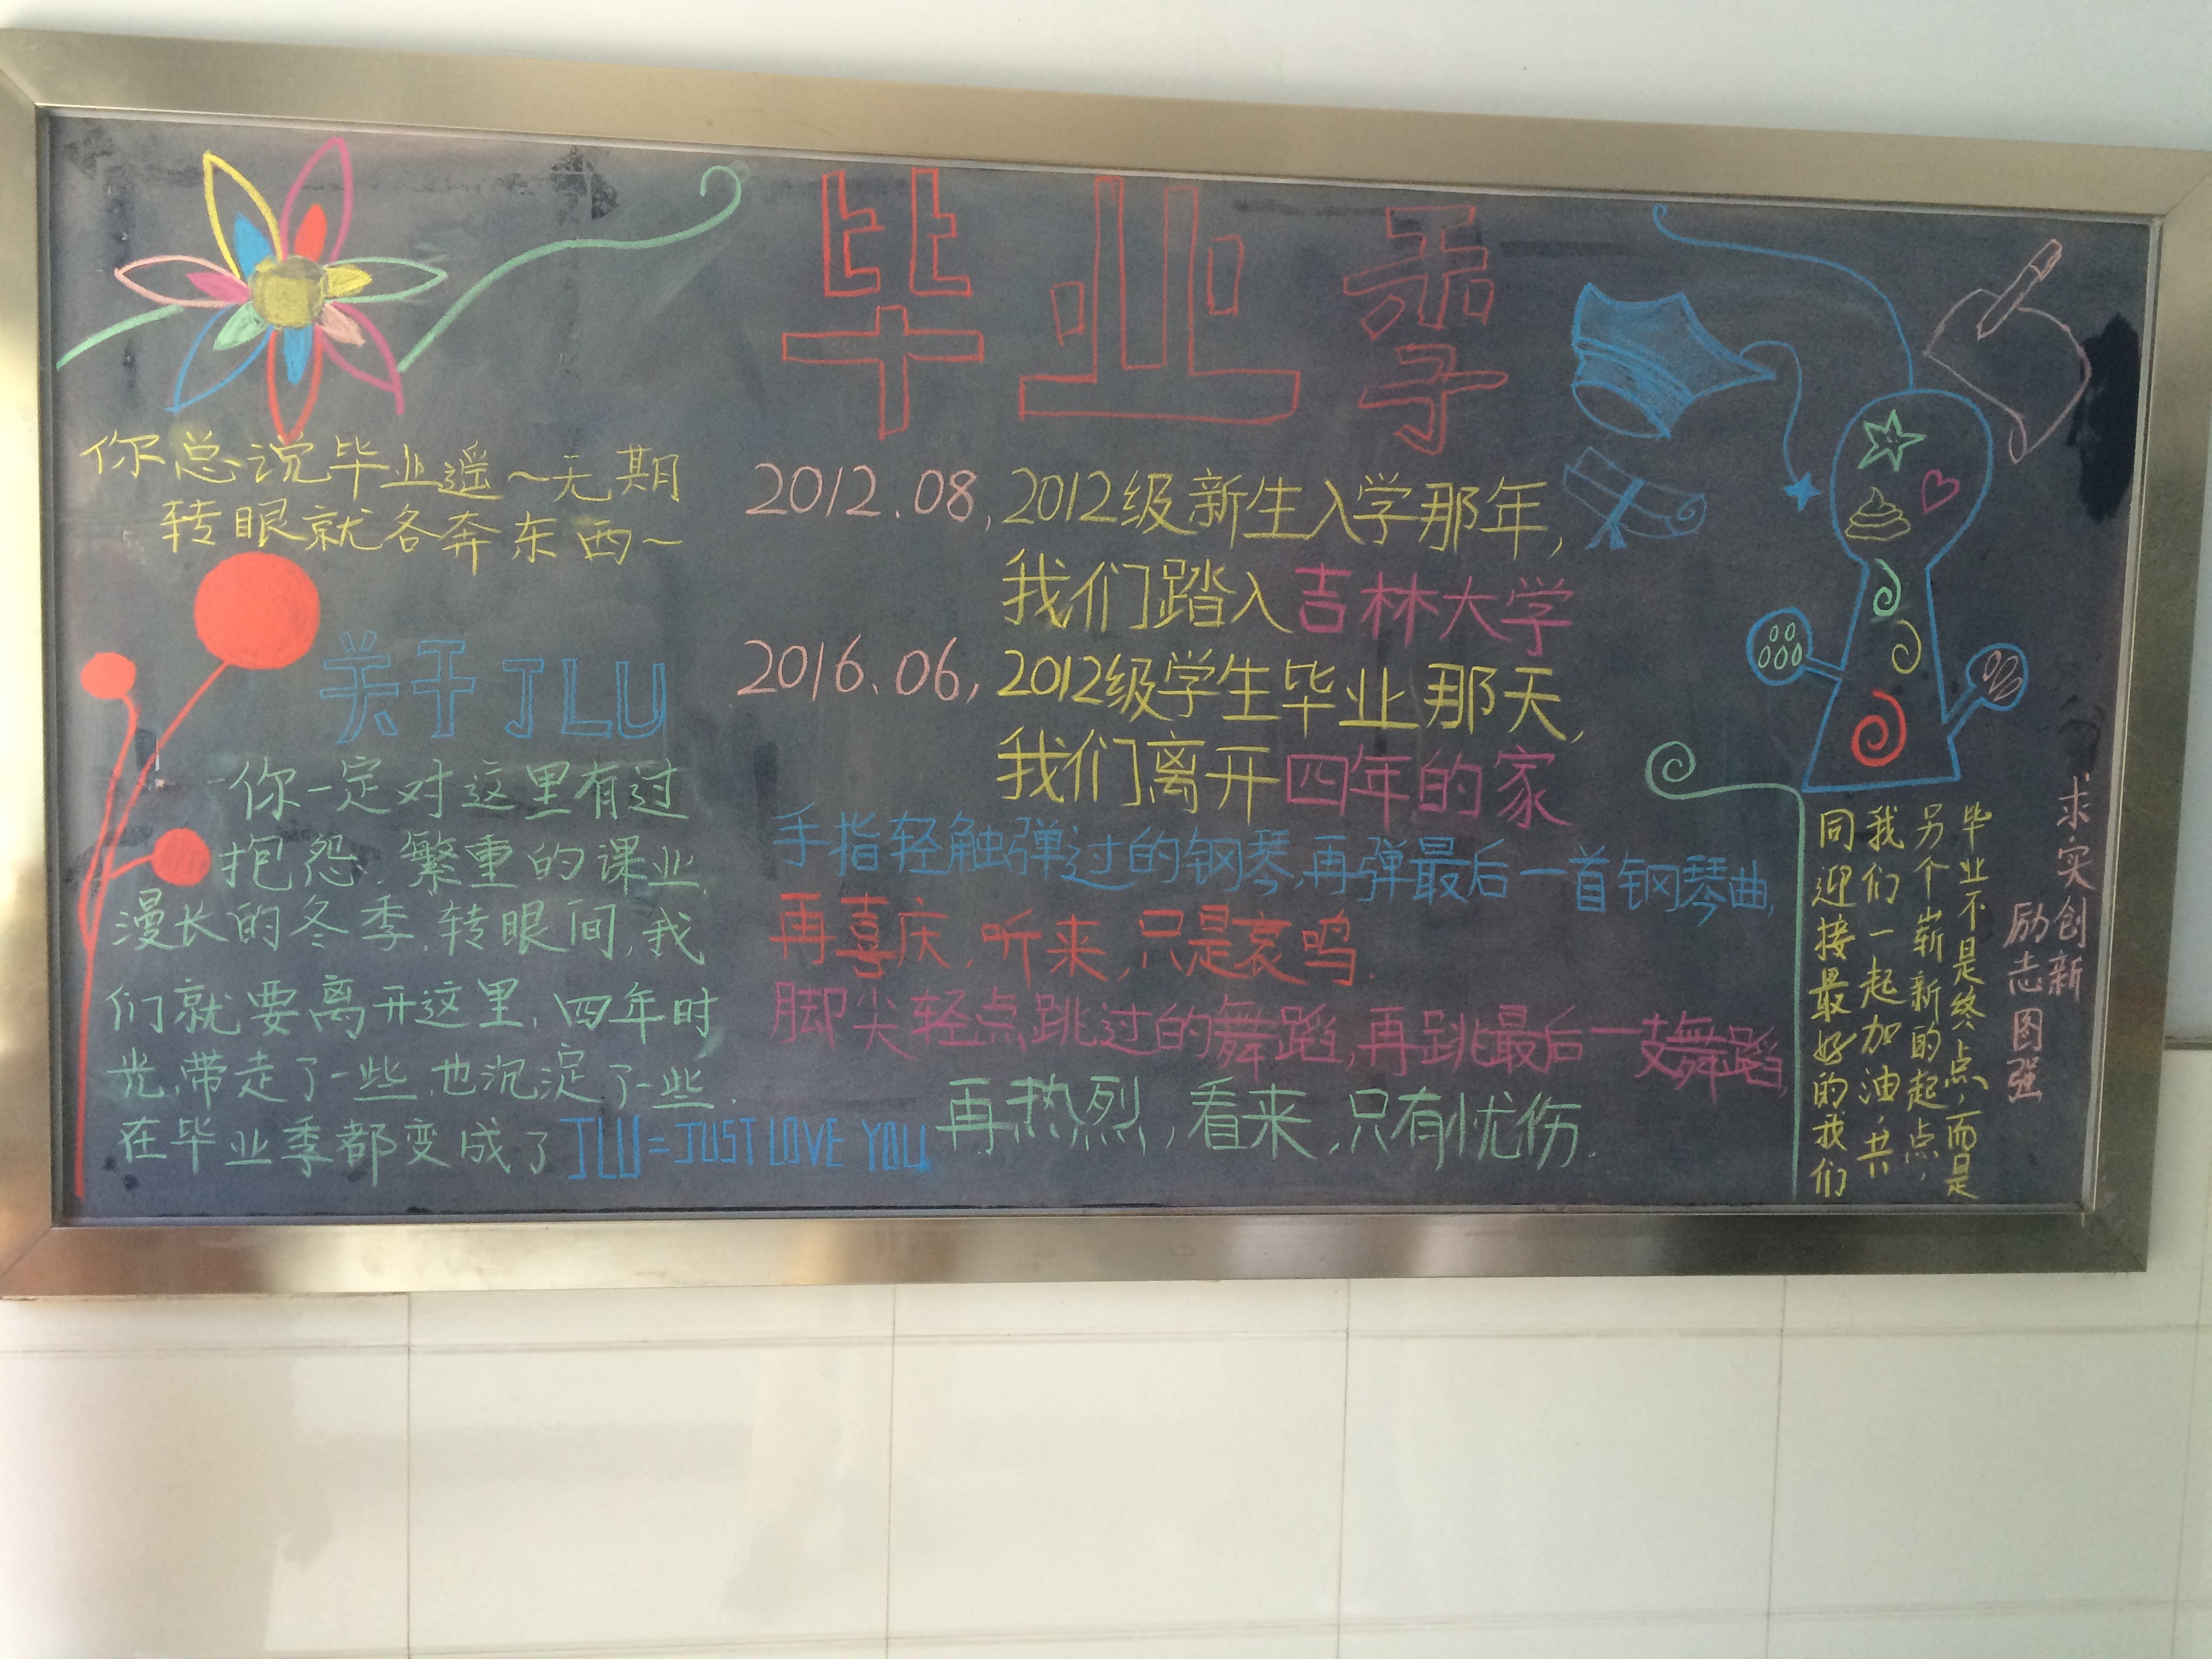 毕业季
你总说毕业遥~无期
转眼就各奔东西~
关于JLU
你一定对这里有过
抱怨,繁重的课业,
漫长的冬季,转眼间,我
们就要离开这里,四年时
光,带走了一些,也沉淀了一些.
在毕业季都变成了JLU=JUST LOVE YOU
2012.08,2012级新生入学那年,
我们踏入吉林大学
2016.06,2012级学生毕业那天,
我们离开四年的家
手指轻触弹过的钢琴,再弹最后一首钢琴曲,
再喜庆,听来,只是哀鸣.
脚尖轻点跳过的舞蹈,再跳最后一支舞蹈,
再热烈,看来,只有忧伤.
求实创新
励志图强
毕业不是终点,而是
另个崭新的起点,
我们一起加油,共
同迎接最好的我们